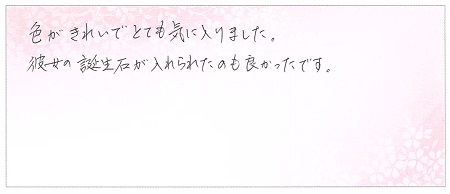 色がきれいでとても気に入りました。
彼女の誕生石が入れられたのも良かったです。